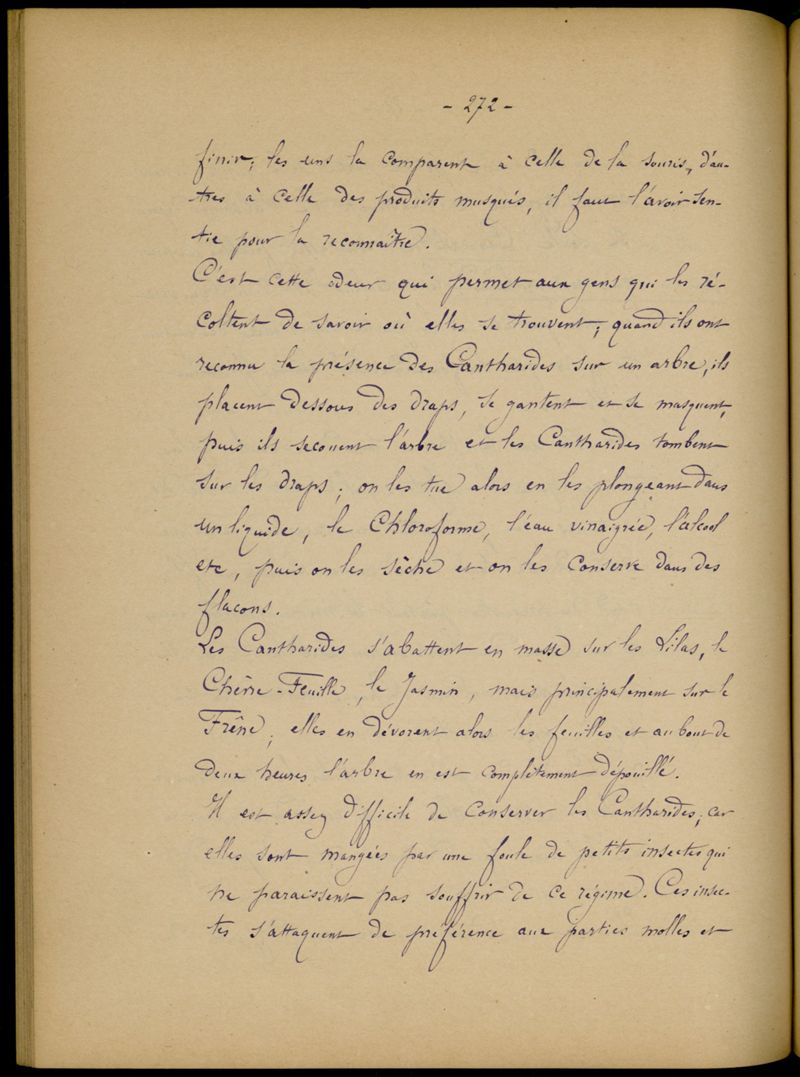 - 272 -
finir; les uns la comparent à celle de la souris, d'au-
tres à celle des produits musqués, il faut l'avoir sen-
tie pour la reconnaître.
C'est cette odeur qui permet aux gens qui les ré-
coltent de savoir où elles se trouvent; quand ils ont
reconnu la présence des Cantharides sur un arbre, ils
placent dessous des draps, se gantent et se masquent,
puis ils secouent l'arbre et les Cantharides tombent
sur les draps; on les tue alors en les plongeant dans
un liquide, le Chloroforme, l'eau vinaigrée, l'alcool
etc, puis on les sèche et on les conserve dans des
flacons.
Les Cantharides s'abattent en masse sur les Lilas, le
Chèvre-Feuille, le Jasmin, mais principalement sur le
Frêne; elles en dévorent alors les feuilles et au bout de
deux heures l'arbre en est complètement dépouillé.
Il est assez difficile de conserver les Cantharides; car
elles sont mangées par une foule de petits insectes qui
ne paraissent pas souffrir de ce régime. Ces insec-
tes s'attaquent de préférence aux parties molles et